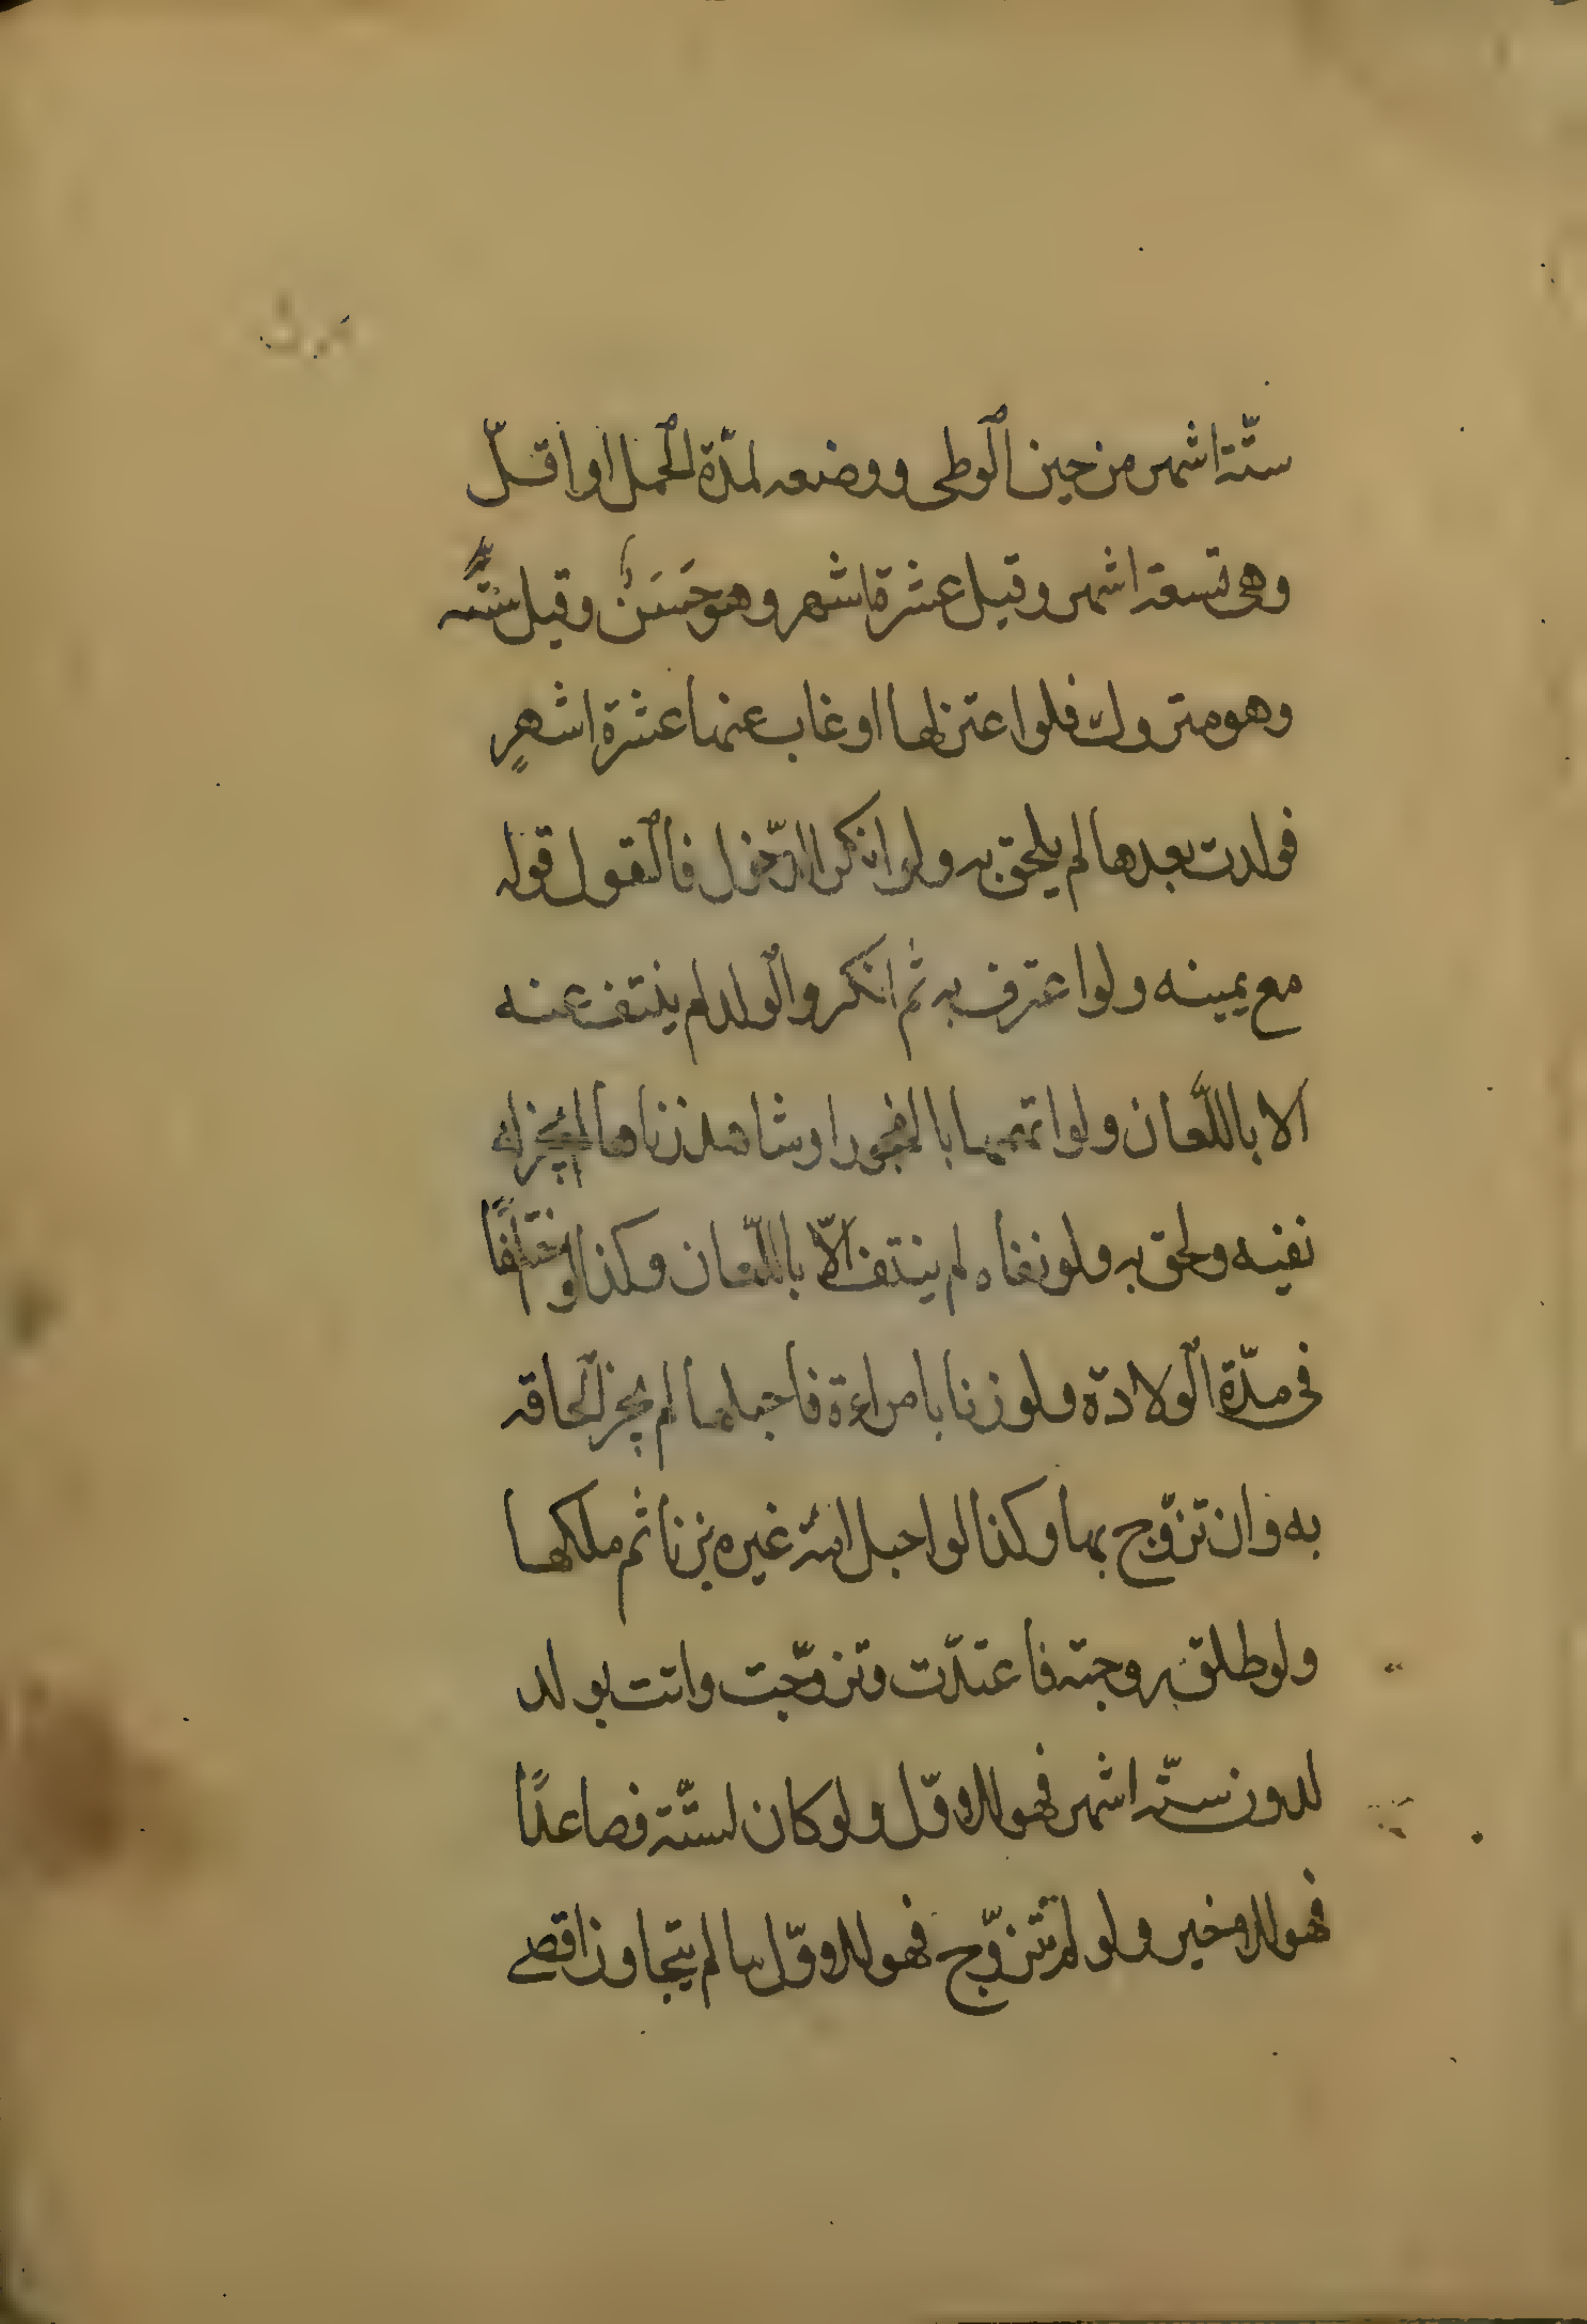 ستّة اشهر من حين الوطى ووضعه لمدّة الحمل او اقلّ
وهى تسعة اشهر وقيل عشرة اشهر وهو حَسَنٌ وقيل سنة
وهو متروك فلو اعتزلها او غاب عنها عشرة اشهرٍ
فولدت بعدها لم يلحق به ولو انكر الدّخول فالقول قوله
مع يمينه ولو اعترف به ثم انكر والولد لم ينتف عنه
الا باللّعان ولو اتهمها بالفجور او شاهد زناها لم يجز له
نفيه ولحق به ولو نفاه لم ينتف الّا باللّعان وكذا لو اختلفا
فى مدّة الولادة ولو زنا بامراءة فاحبلها لم يجز الحاقه
به وان تزوّج بها وكذا لو احبل امة غيره بزنا ثم ملكها
ولو طلق زوجته فاعتدّت وتزوّجت واتت بولد
لدون ستّة اشهر فهو للاوّل ولو كان لستّة فصاعدًا
فهو للاخير ولو لم تتزوّج فهو للاوّل ما لم يتجاوز اقصى